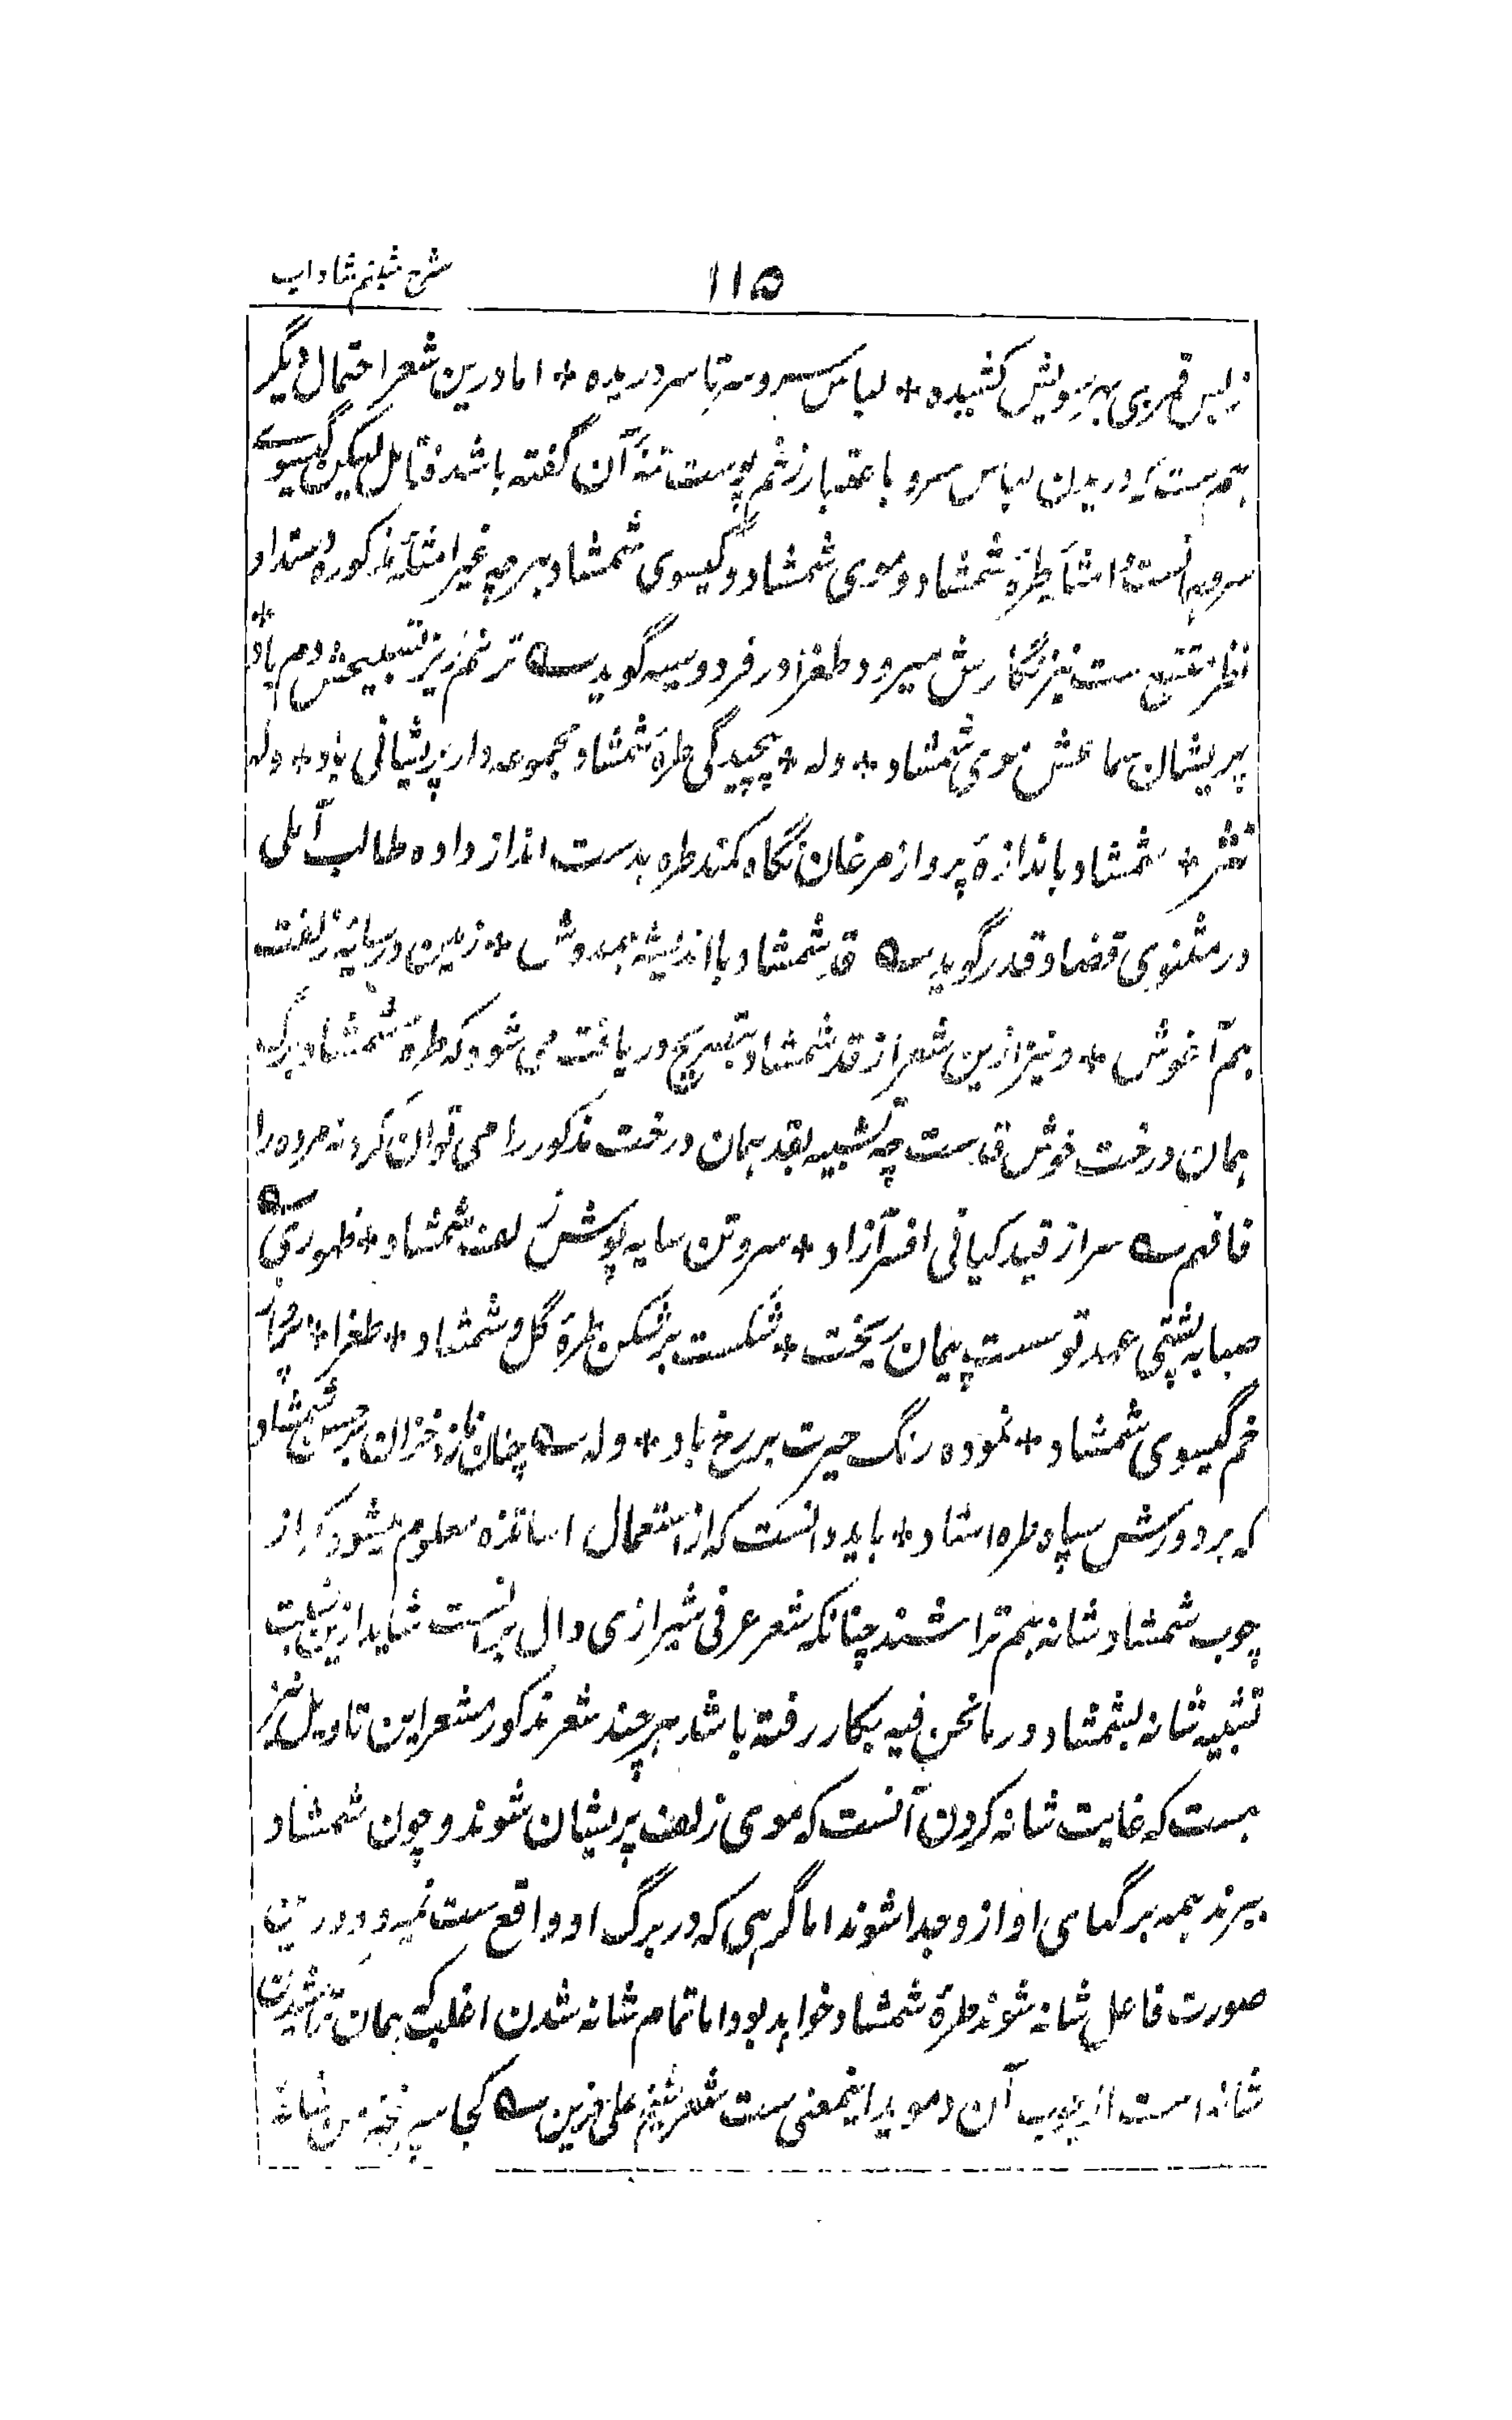 شرح شبنم شاداب
۱۱۵
زبس قمری بهر سویش کشیده * لباس سرو سر تا سر دریده * اما درین شعر احتمال دیگر
هم ست که دریدن لباس سرو باعتبار زخم پوست تنهٔ آن گفته باشد فتامل لیکن گیسوی
شمشاد و موی شمشاد و گیسوی شمشاد هر چه غیر امثلهٔ مذکوره
نظر نیز نگارش میرود طغرا در فردوسیه گوید ترنم ریز تسبیحش دم باد *
پریشان سماعش موی شمشاد * وله * پیچیدگی طرهٔ شمشاد مجموعه دار پریشانی باد * وله
نثر * شمشاد باندازهٔ پرواز مرغان نگاه کمند طره بدست انداز داده طالب آملی
در مثنوی قضا و قدر گوید قد شمشاد با اندیشه همدوش * زمین در سایهٔ زلفت
هم آغوش * و نیز ازین شعر از قد شمشاد بتصریح دریافت می شود که طرهٔ شمشاد برگ
همان درخت خوش قد ست چه تشبیه بقد همان درخت مذکور را می توان کرد نه مرده را
فافهم سر از قید کیانی افسر آزاد * سر و تن سایه پوش زلف شمشاد * ظهوری
صبا به پشتی عهد تو سست پیمان ریخت * شکست بر شکن طرهٔ گل و شمشاد * طغرا *
خم گیسوی شمشاد * نموده رنگ حیرت بر رخ باد * وله چنان نازد خزان بر حسن شمشاد
که بر دورش سپاه طره استاد * باید دانست که از استعمال اساتذه معلوم میشود که از
چوب شمشاد شانه هم تراشند چنانکه شعر عرفی شیرازی دال برانست شاید ازین جهت
تشبیه شانه بشمشاد در مانحن فیه بکار رفته باشد هر چند شعر مذکور مشعر این تاویل نیز
هست که غایت شانه کردن آنست که موی زلف پریشان شوند و چون شمشاد
ببرند همه برگهای او از و جدا شوند اما گرهی که در برگ او واقع ست نمیرود درین
صورت فاعل شانه شوند طرهٔ شمشاد خواهد بود اما تمام شانه شدن اغلب که همان تراشیدن
شانه است از چوب آن و موید اینمعنی ست شعر شیخ علی حزین کجا